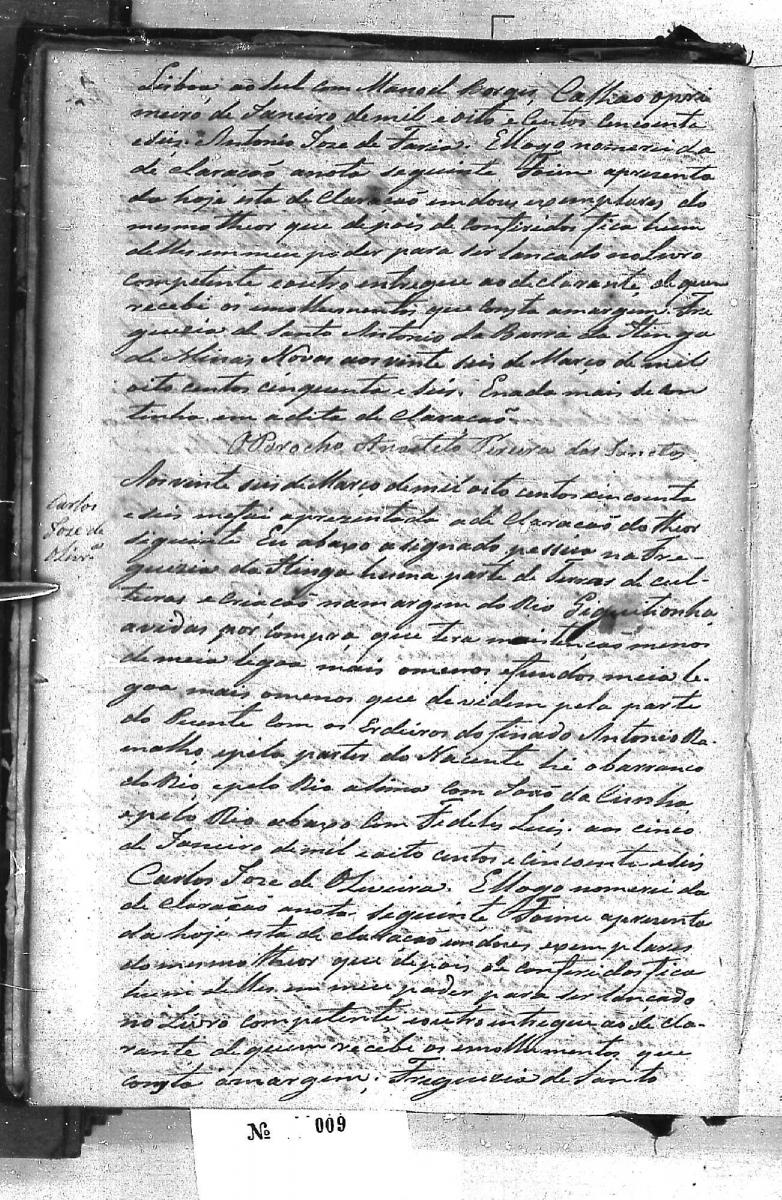 Lisboa ao Sul com Manoel Borges, Calhao opri
meiro, de Janeiro de mil e oito e Centos Cencoenta
e seis. Antonio Joze de Faria. E logo nomerei da
de claração anota seguinte Foime apresenta
da hoje esta de claracaõ em dous exemplares do
mesmo theor que depois de conferidos fica hum
delles em meu poder para ser lancado no livro
competente e outro entregue ao declarante, de quem
recebi os emollumentos que consta amargem. Fre
guezia de Santo Antonio da Barra da Itinga
de Minas Novas aos vinte seis de Março de mil
oito centos cinquenta e seis. Enada mais se con
tinha em a dita de claracaõ.
O Parocho Anacleto Pereira dos Sanctos
Carlos
Joze de
Olivrª
Aos vinte seis de Março de mil oito centos cincoenta
e seis me foi apresentada a de Claracaõ do theor
seguinte Eu abaxo asignado pessuo na Fre-
guezia da Itinga huma parte de Terras de cul-
turas e Criacaõ namargem do Rio Gequitionha,
avidas por compra que tera
de meia legoa mais omenos efundos meia le-
goa mais omenos que devidem pela parte
do Puente com os Erdeiros do finado Antonio Ra-
malho, epela partes do Nacente he obarranco
do Rio, epelo Rio asima com João da Cunha,
epelo Rio abaxo Com Fedelis Luis. aos cinco
de Janeiro de mil e oito centos e cincoenta e seis
Carlos Joze de Oliveira. E logo nomerei da
de Claracaõ anota seguinte Foime apresenta
da hoje esta de claracaõ em dores exemplares
do mesmo theor que depois de conferidos fica
hum delles em meu poder para ser lancado
no Livro competente e outro entregue ao de cla-
rante de quem recebi os emollumentos que
consta amargem. Freguezia de Santo
Nº 009